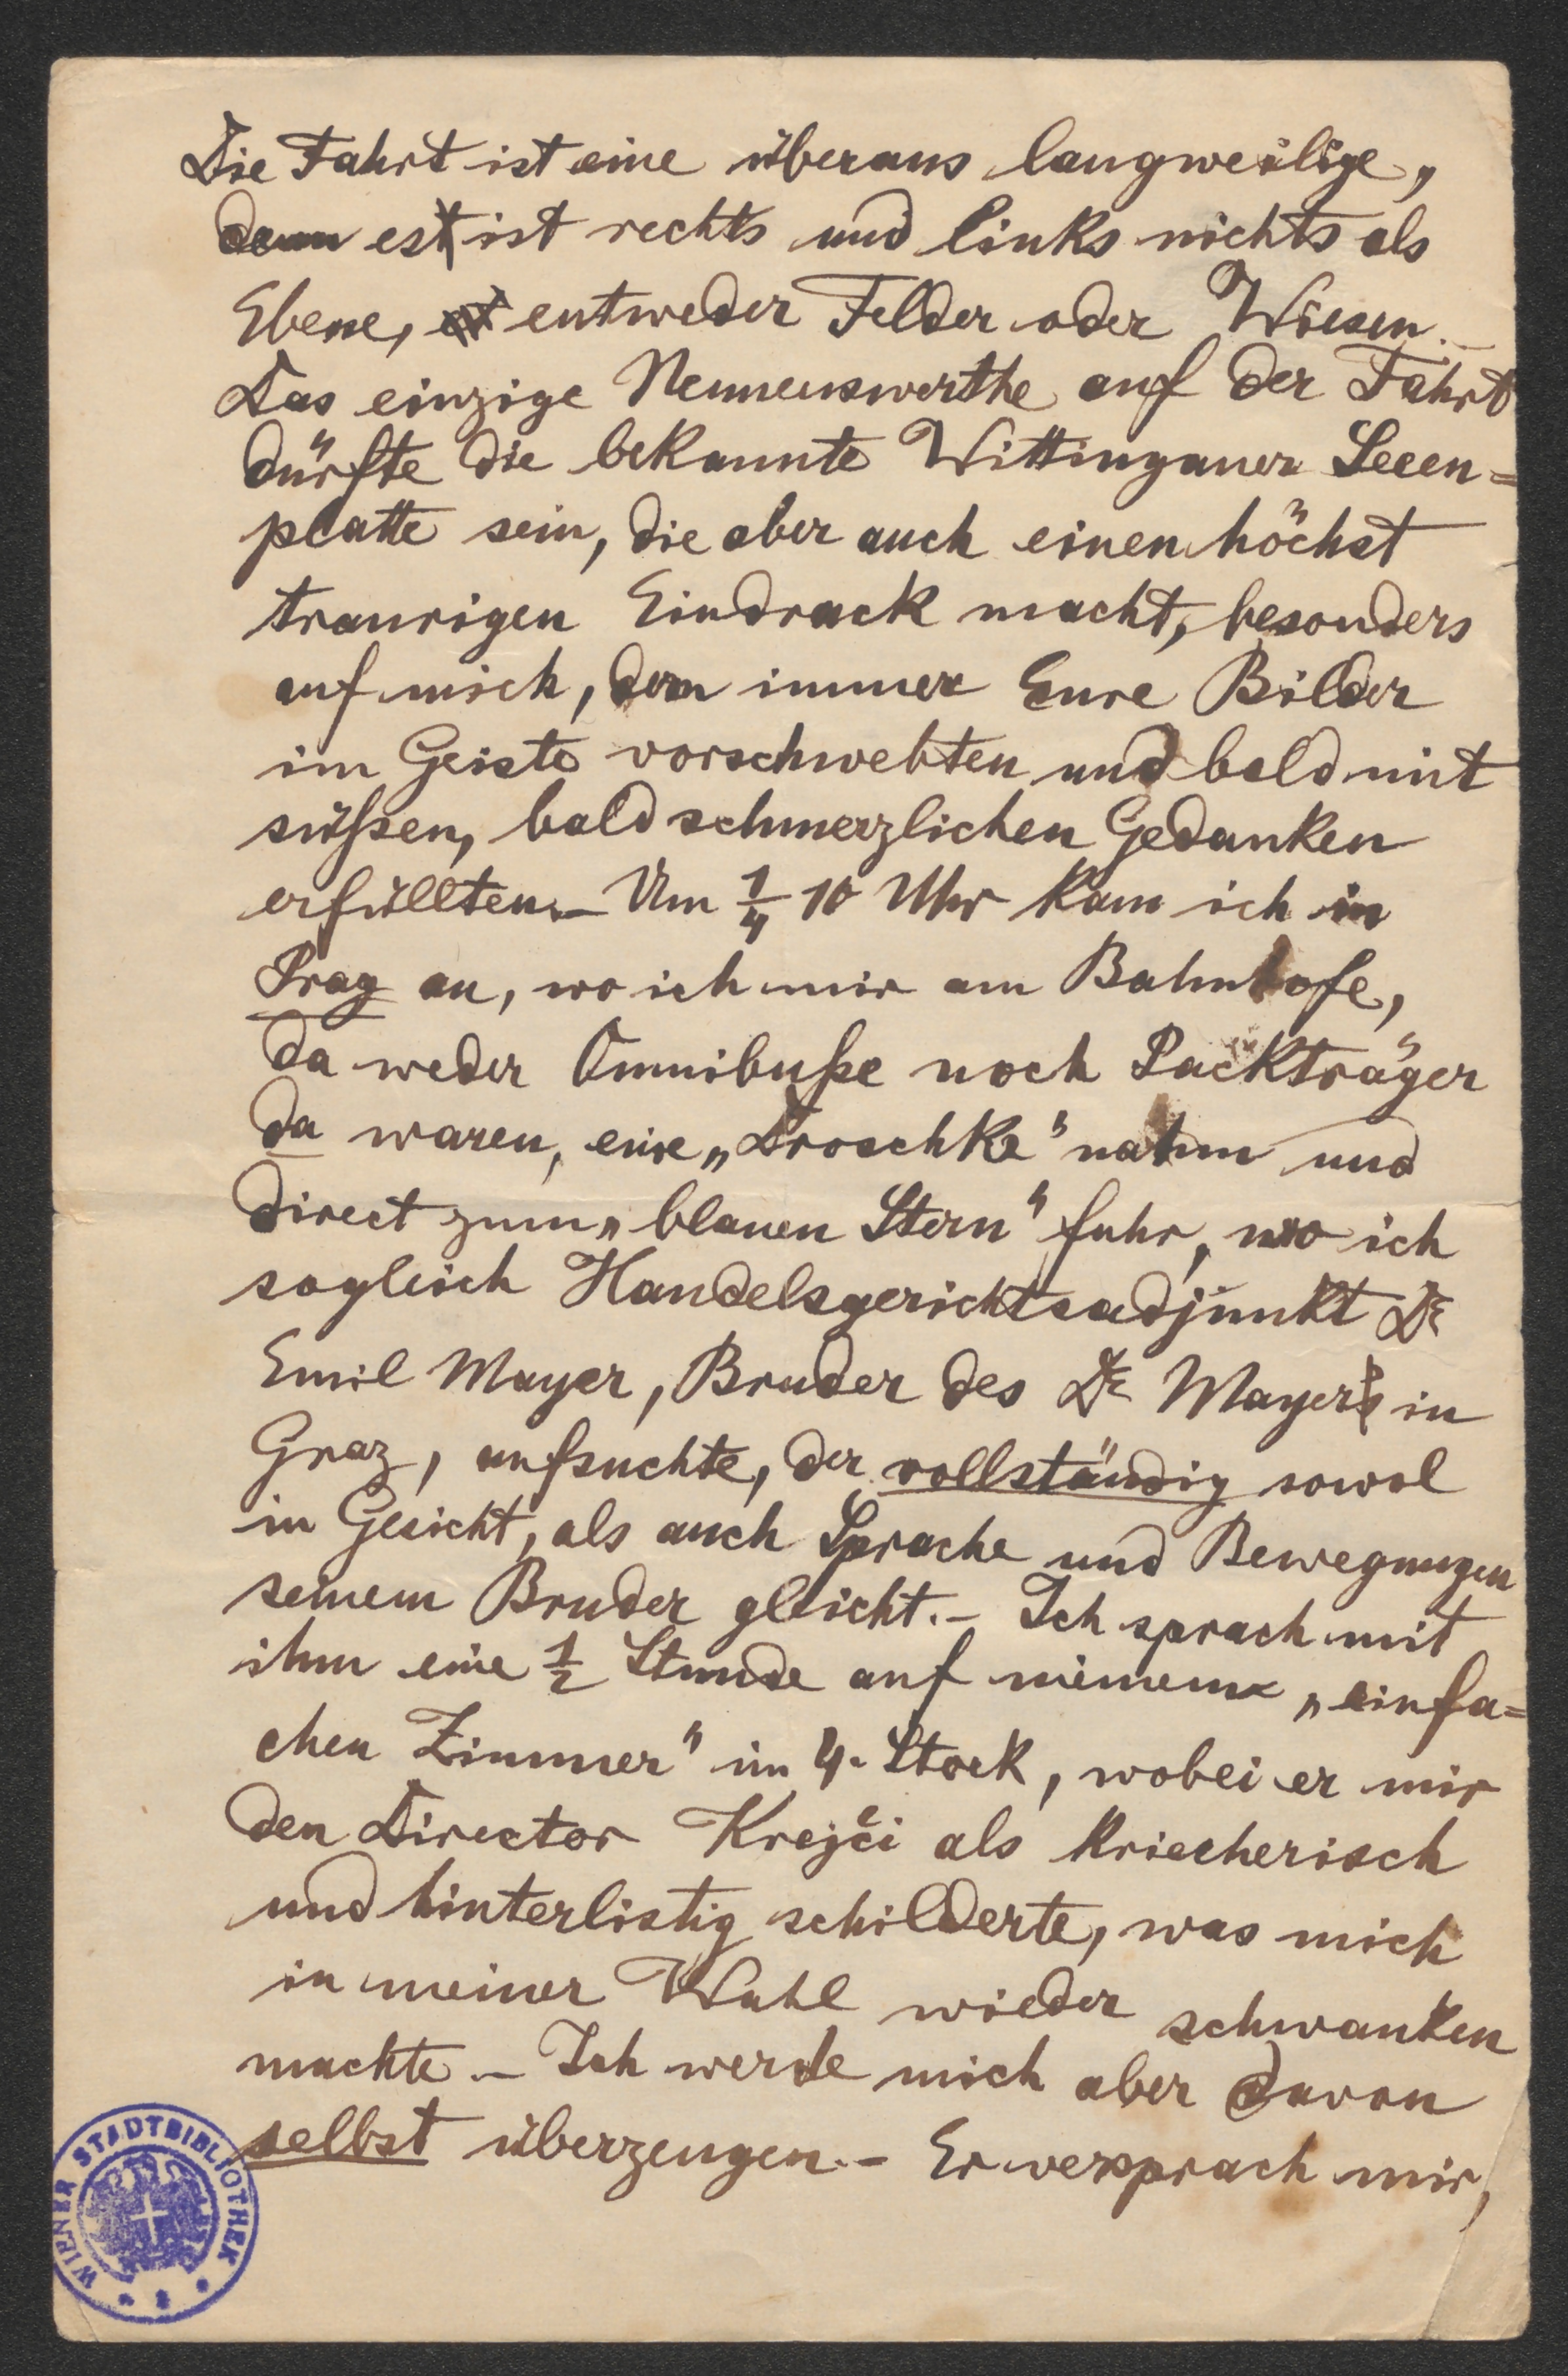 Die Fahrt ist eine überaus langweilige,
denn es ist rechts und links nichts als
Ebene, entweder Felder oder Wiesen.–
Das einzige Nennenswerthe auf der Fahrt
dürfte die bekannte Wittingauer Seeen=
platte sein, die aber auch einen höchst
traurigen Eindruck macht, besonders
auf mich, dem immer Eure Bilder
im Geiste vorschwebten und bald mit
süßen, bald schmerzlichen Gedanken
erfüllten.– Um 1/4 10 Uhr kam ich in
Prag an, wo ich mir am Bahnhofe,
da weder Omnibuße noch Packträger
da waren, eine „Droschke" nahm und
direct zum „blauen Stern" fuhr, wo ich
sogleich Handelsgerichtsadjunkt Dr
Emil Mayer, Bruder des Dr Mayer in
Graz, aufsuchte, der vollständig sowol
in Gesicht, als auch Sprache und Bewegungen
seinem Bruder gleicht.– Ich sprach mit
ihm eine 1/2 Stunde auf meinem „einfa=
chen Zimmer" im 4. Stock, wobei er mir
den Director Krejči als kriecherisch
und hinterlistig schilderte, was mich
in meiner Wahl wieder schwanken
machte.– Ich werde mich aber davon
selbst überzeugen.– Er versprach mir,
WIENER STADTBIBLIOTHEK